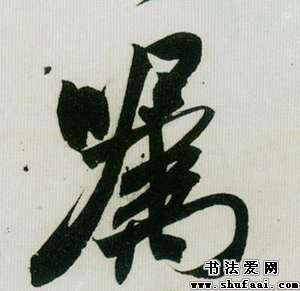 嘱
书法爱网
www.shufaai.com